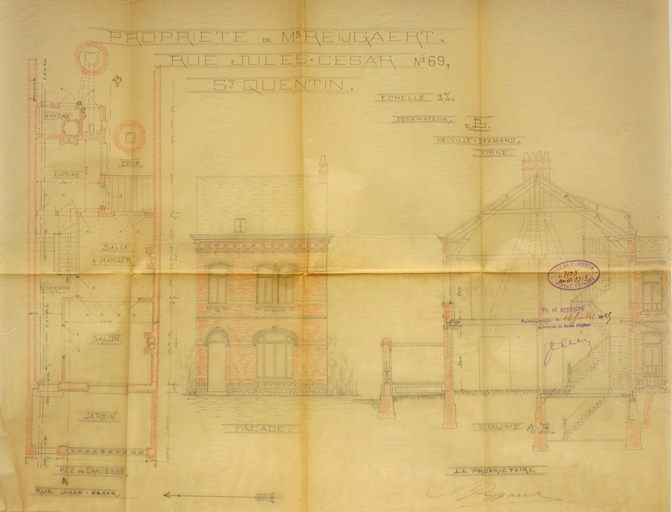 PROPRIETE DE MR REIJGAERT.
RUE JULES-CESAR Nº 69,
ST QUENTIN.
ECHELLE 2%.
DESSINATEUR.
NEUVILLE-ST AMAND.
AISNE.
COUR
CUISINE
SALLE
A MANGER
SALON
JARDIN
REZ DE CHAUSSEE
A
RUE JULES-CESAR.
FAÇADE.
COUPE A.B.
Vu et approuvé
LE PROPRIETAIRE